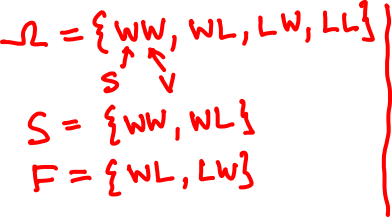 Ω = {WW, WL, LW, LL}
S V
S = {WW, WL}
F = {WL, LW}